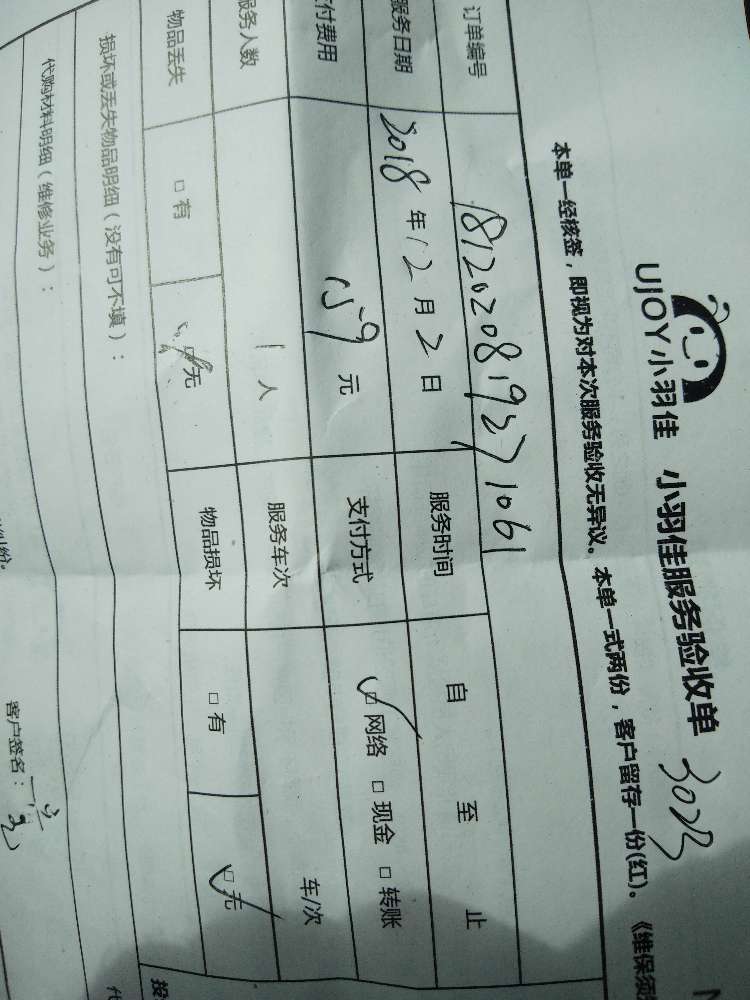 UJOY小羽佳 小羽佳服务验收单 3023
本单一经核签，即视为对本次服务验收无异议。本单一式两份，客户留存一份(红)。《维保须
订单编号 1812020819271061
服务日期 2018年12月2日 服务时间 自 至 止
付费用 159元 支付方式 ☑网络 □现金 □转账
服务人数 1人 服务车次 车/次
物品丢失 □有 ☑无 物品损坏 □有 ☑无
损坏或丢失物品明细（没有可不填）：
代购材料明细（维修业务）：
客户签名：